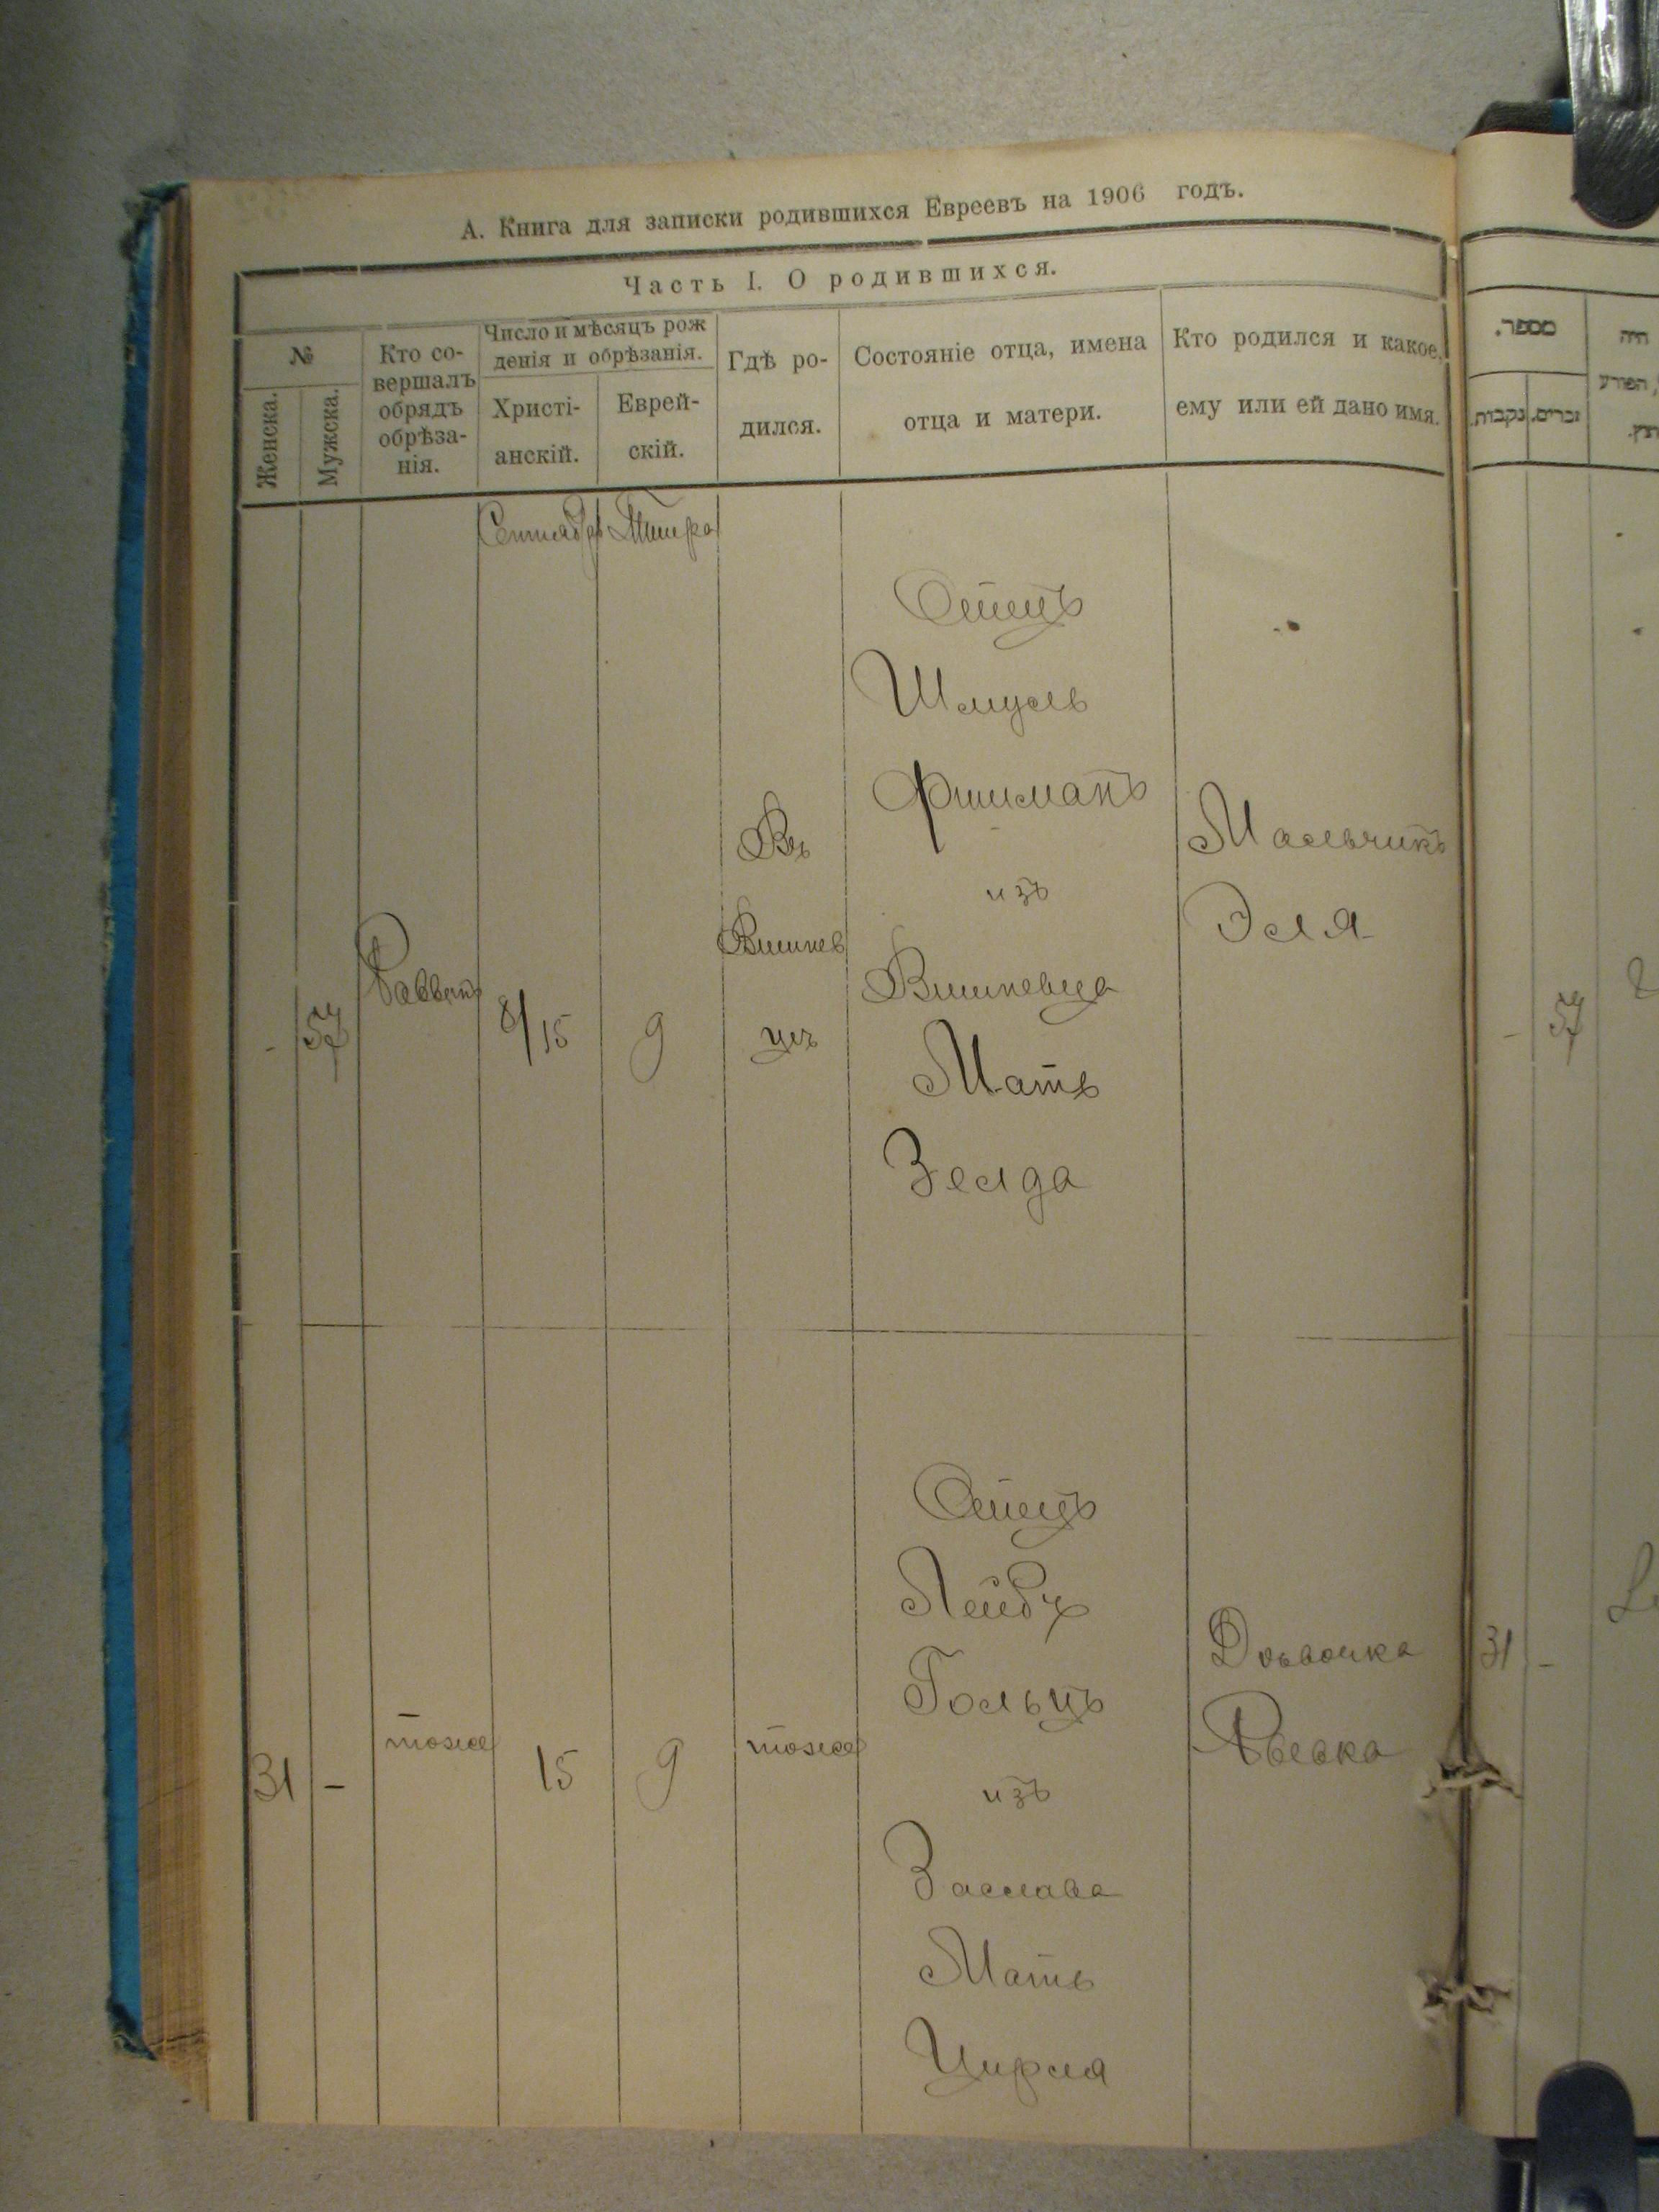 А. Книга для записки родившихся Евреевъ на 1906 годъ.
Часть I. О родившихся.
№
Женска.
Мужска.
Кто со-
вершалъ
обрядъ
обрѣза-
нія.
Число и мѣсяцъ рож
денія и обрѣзанія.
Христі-
анскій.
Еврей-
скій.
Гдѣ ро-
дился.
Состояніе отца, имена
отца и матери.
Кто родился и какое,
ему или ей дано имя.
מספר.
נקבות.
זכרים.
היה
הפורע
Сентябрь
Тишра
-
57
Раввинъ
8/15
9
Въ
Вишнев
цѣ
Отецъ
Шмуль
Фишманъ
изъ
Вишневца
Мать
Зелда
Мальчикъ
Эля
-
57
31
-
тоже
15
9
тоже
Отецъ
Лейбъ
Гольцъ
изъ
Заслава
Мать
Цирля
Дѣвочка
Рывка
31
-